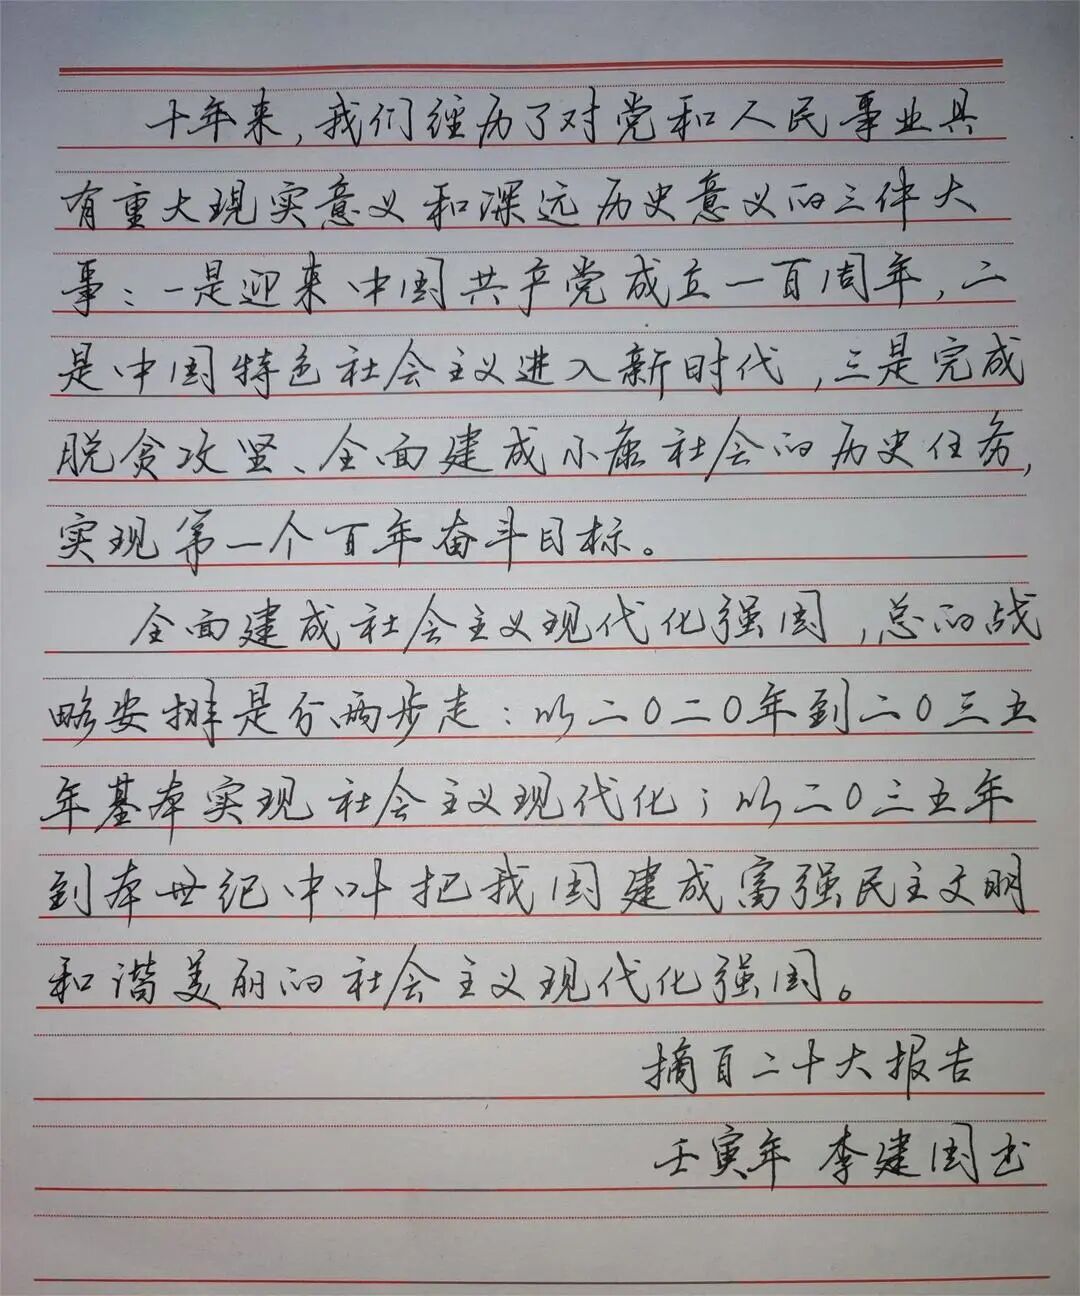 十年来,我们经历了对党和人民事业具
有重大现实意义和深远历史意义的三件大
事:一是迎来中国共产党成立一百周年,二
是中国特色社会主义进入新时代,三是完成
脱贫攻坚、全面建成小康社会的历史任务,
实现第一个百年奋斗目标。
全面建成社会主义现代化强国,总的战
略安排是分两步走:从二〇二〇年到二〇三五
年基本实现社会主义现代化;从二〇三五年
到本世纪中叶把我国建成富强民主文明
和谐美丽的社会主义现代化强国。
摘自二十大报告
壬寅年 李建国书